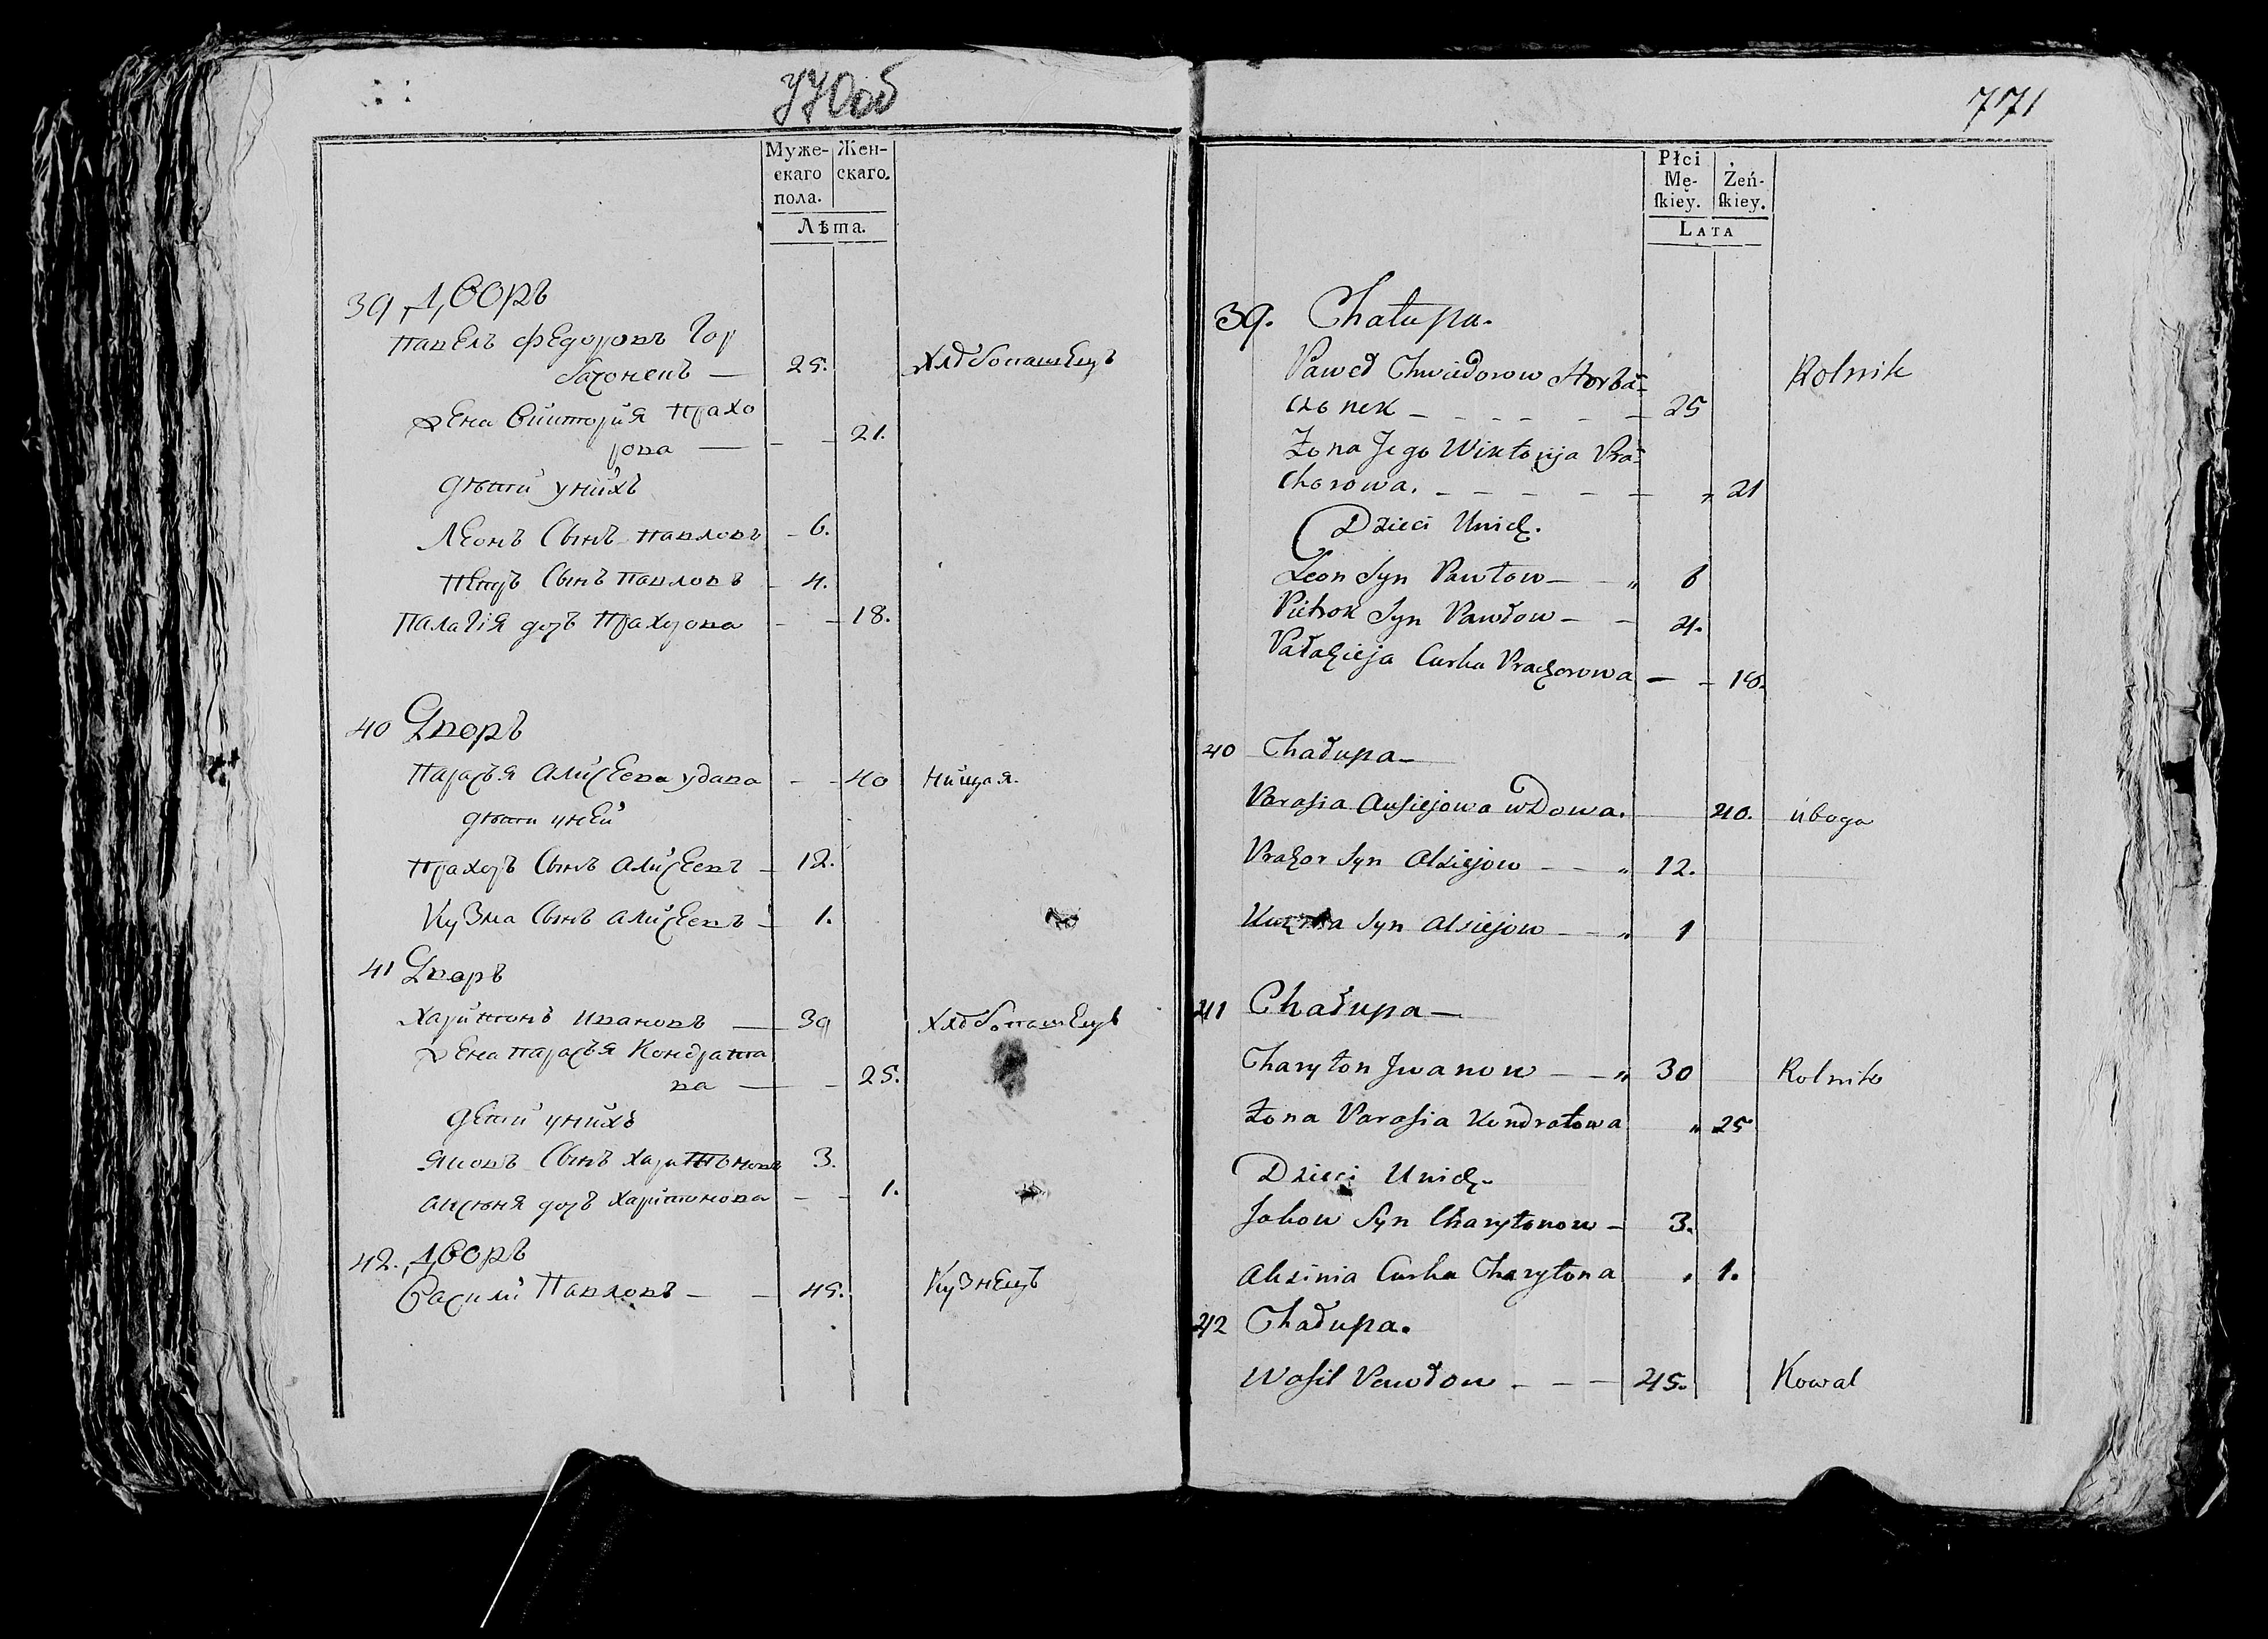 770об
Муже- Жен-
скаго скаго.
пола.
Лѣта.
39 Дворъ
Павелъ Федоровъ Гор
бачонекъ — 25. Хлѣбопашецъ
Жена Виктория Прахо
рова — 21.
дѣти унихъ
Леонъ Сынъ Павловъ 6.
Петръ Сынъ Павловъ 4.
Палагія дочь Прахорова 18.
40 Дворъ
Парасья Алисеева удава 40 Нищая.
дѣти уней
Прахоръ Сынъ Алисеевъ 12.
Кузма Сынъ Алисеевъ 1.
41 Дворъ
Харитонъ Ивановъ — 30 Хлѣбопашецъ
Жена Парасья Кондрато
ва — 25.
дети унихъ
Яковъ Сынъ Харитоновъ 3.
Аксюня дочъ Харитонова 1.
42. Дворъ
Васили Павловъ — 45. Кузнецъ
771
Płci
Mę- Żeń-
ſkiey. ſkiey.
LATA
39. Chałupa.
Paweł Chwiedorow Horba-
czonek — 25 Rolnik
Żona Jego Wiktoryja Pra-
chorowa. — 21
Dzieci Unich.
Leon Syn Pawłow — 6
Pietrok Syn Pawłow — 4.
Pałachieja Curka Prachorowa — 18.
40 Chałupa —
Parasia Ausiejowa wdowa. 40. uboga
Prachor Syn Alsiejow — 12.
Kuzma Syn Alsiejow — 1
41 Chałupa —
Charyton Jwanow — 30 Rolnik
Żona Parasia Kondratowa 25
Dzieci Unich.
Jakow Syn Charytonow — 3.
Aksinia Curka Charytona 1.
42 Chałupa.
Wasil Pawłow — 45. Kowal